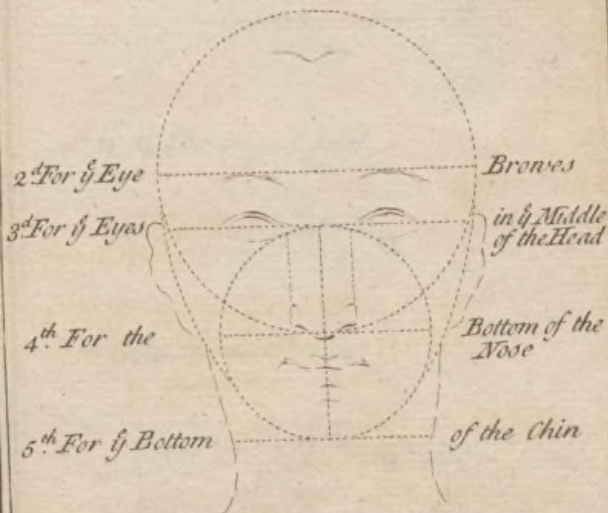 2.d For ye Eye Browes
3.d For ye Eyes in ye Middle
of the Head
4.th For the Bottom of the
Nose
5.th For ye Bottom of the Chin